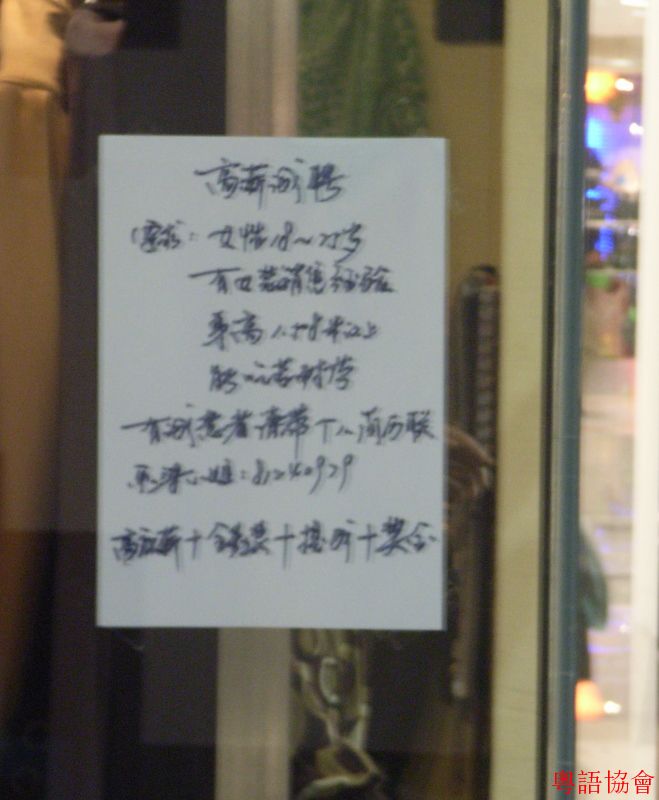 高薪诚聘
要求: 女性18~25岁
有女装销售经验
身高1.58米以上
能吃苦耐劳
有诚意者请带个人简历联
系梁小姐: 81240929
高底薪+全勤奖+提成+奖金
粵語協會